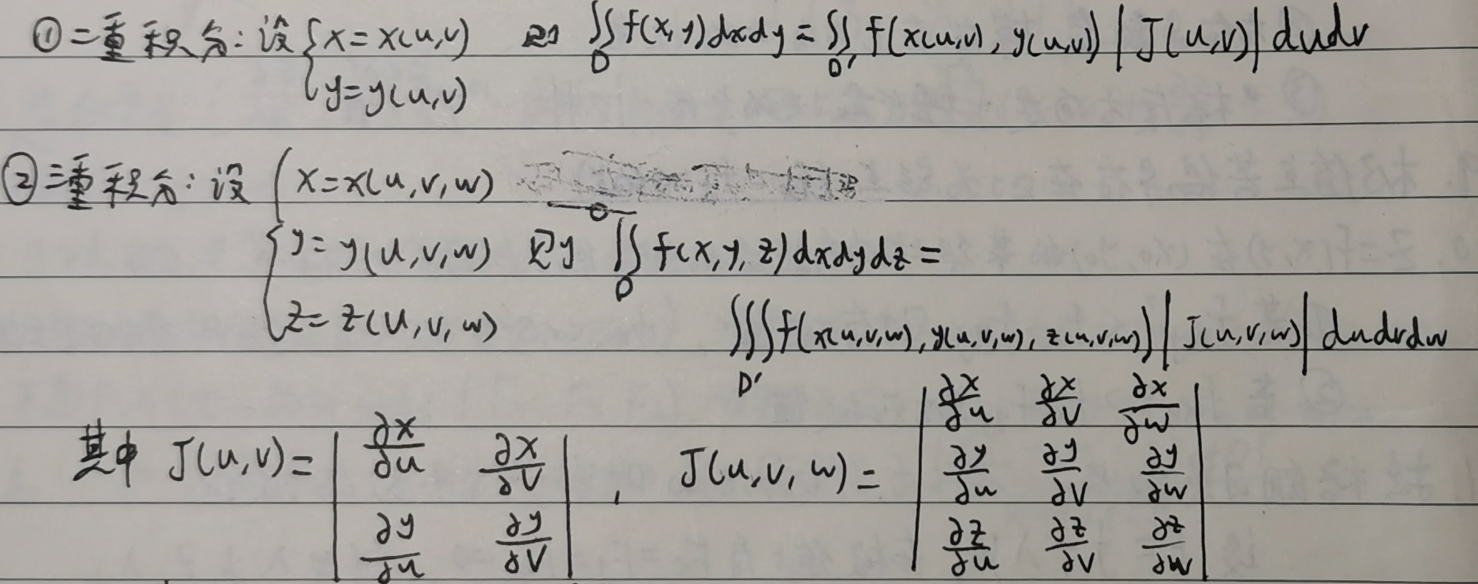 ①二重积分:设 { x=x(u,v) 则 ∬_D f(x,y)dxdy = ∬_D' f(x(u,v), y(u,v)) |J(u,v)| dudv
y=y(u,v)
②三重积分:设 { x=x(u,v,w)
y=y(u,v,w) 则 ∬_D f(x,y,z)dxdydz =
z=z(u,v,w)
∭_D' f(x(u,v,w), y(u,v,w), z(u,v,w)) |J(u,v,w)| dudvdw
其中 J(u,v) = | ∂x/∂u ∂x/∂v ; ∂y/∂u ∂y/∂v | , J(u,v,w) = | ∂x/∂u ∂x/∂v ∂x/∂w ; ∂y/∂u ∂y/∂v ∂y/∂w ; ∂z/∂u ∂z/∂v ∂z/∂w |